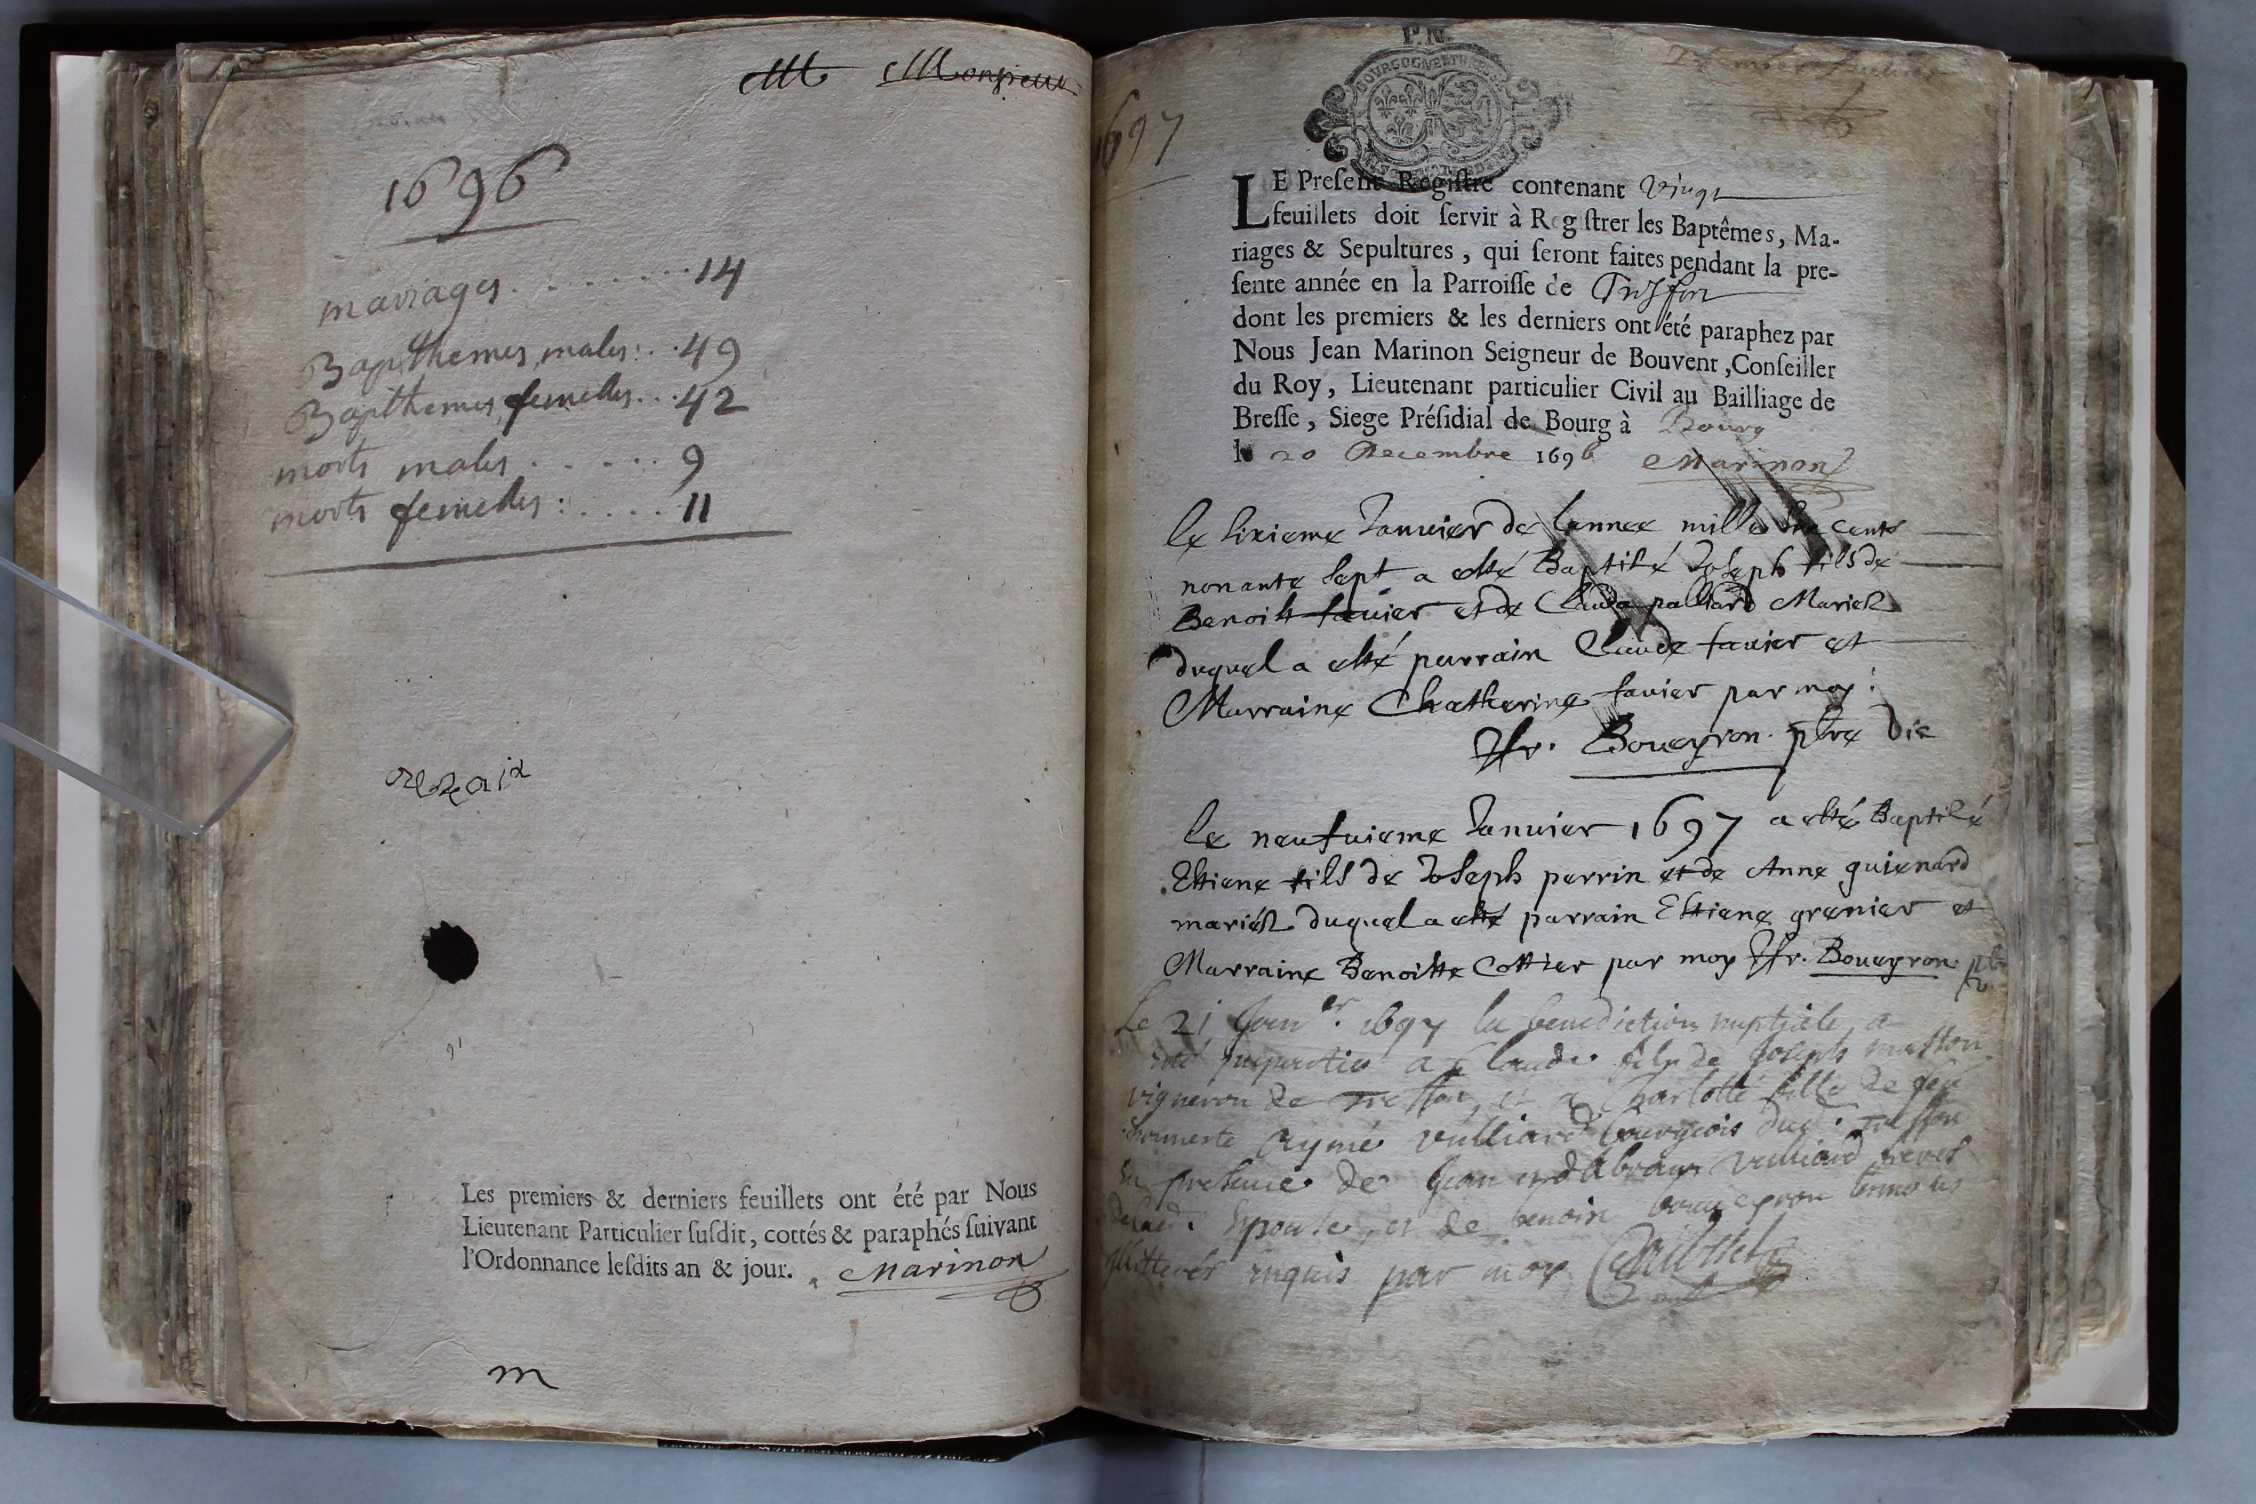 M Monsieur
1696
mariages . . . . . . . . 14
Bapthemes males : . . 49
Bapthemes femelles . . . 42
morts males . . . . . . 9
morts femelles : . . . . 11
Les premiers & derniers feuillets ont été par Nous
Lieutenant Particulier ſuſdit, cottés & paraphés ſuivant
l'Ordonnance leſdits an & jour. Marinon
m
1697
P.N.
LE Preſent Regiſtre contenant vingt
feuillets doit ſervir à Regſtrer les Baptêmes, Ma-
riages & Sepultures, qui ſeront faites pendant la pre-
ſente année en la Parroiſſe de Treffort
dont les premiers & les derniers ont été paraphez par
Nous Jean Marinon Seigneur de Bouvent, Conſeiller
du Roy, Lieutenant particulier Civil au Bailliage de
Breſſe, Siege Préſidial de Bourg à Bourg
le 20 Decembre 1696 Marinon
le sixieme Janvier de lannee mille six cents
nonante sept a esté Baptisé Joseph fils de
Benoit favier et de Clauda palliard Mariés
duquel a esté parrain Claude favier et
Marraine Chatherine favier par moy
Fr. Boueyron ptre vic
le neufvieme Janvier 1697 a esté Baptisé
Estiene fils de Joseph perrin et de Anne guienard
mariés duquel a esté parrain Estiene grenier et
Marraine Benoitte Cottier par moy Fr. Boueyron
Le 21 Janer. 1697 la benediction nuptiele a
esté impartie a Claude fils de Joseph
vigneron de et a Charlotte fille de feu
honneste Aymé Vulliard bourgeois dud.
En presence de Jean et dAbram Vulliard freres
de lad. Epouse et de benoit boueyron
requis par moy